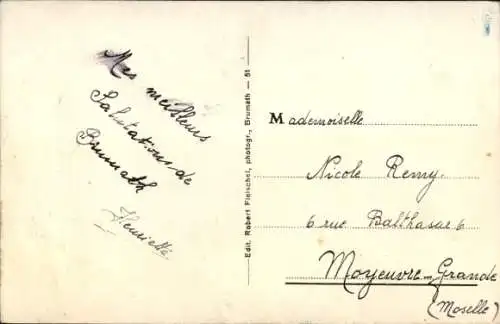 Mes meilleurs
Salutations de
Brumath
Henriette
Edit. Robert Fleischel, photogr., Brumath — 51
Mademoiselle
Nicole Remy
6 rue Balthasar 6
Moyeuvre-Grande
(Moselle)